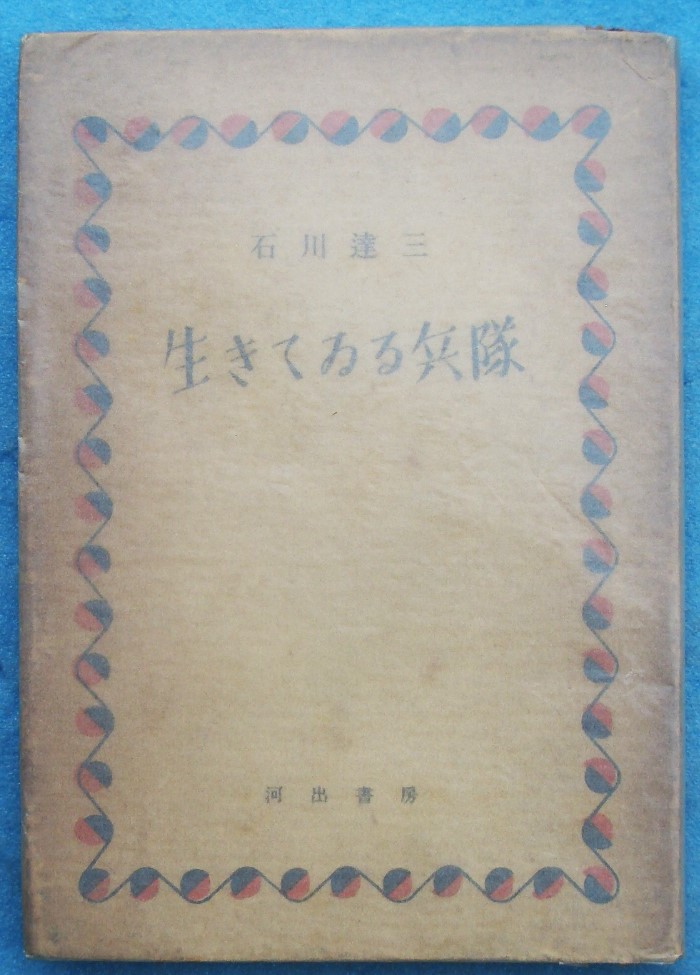 石川達三
生きてゐる兵隊
河出書房